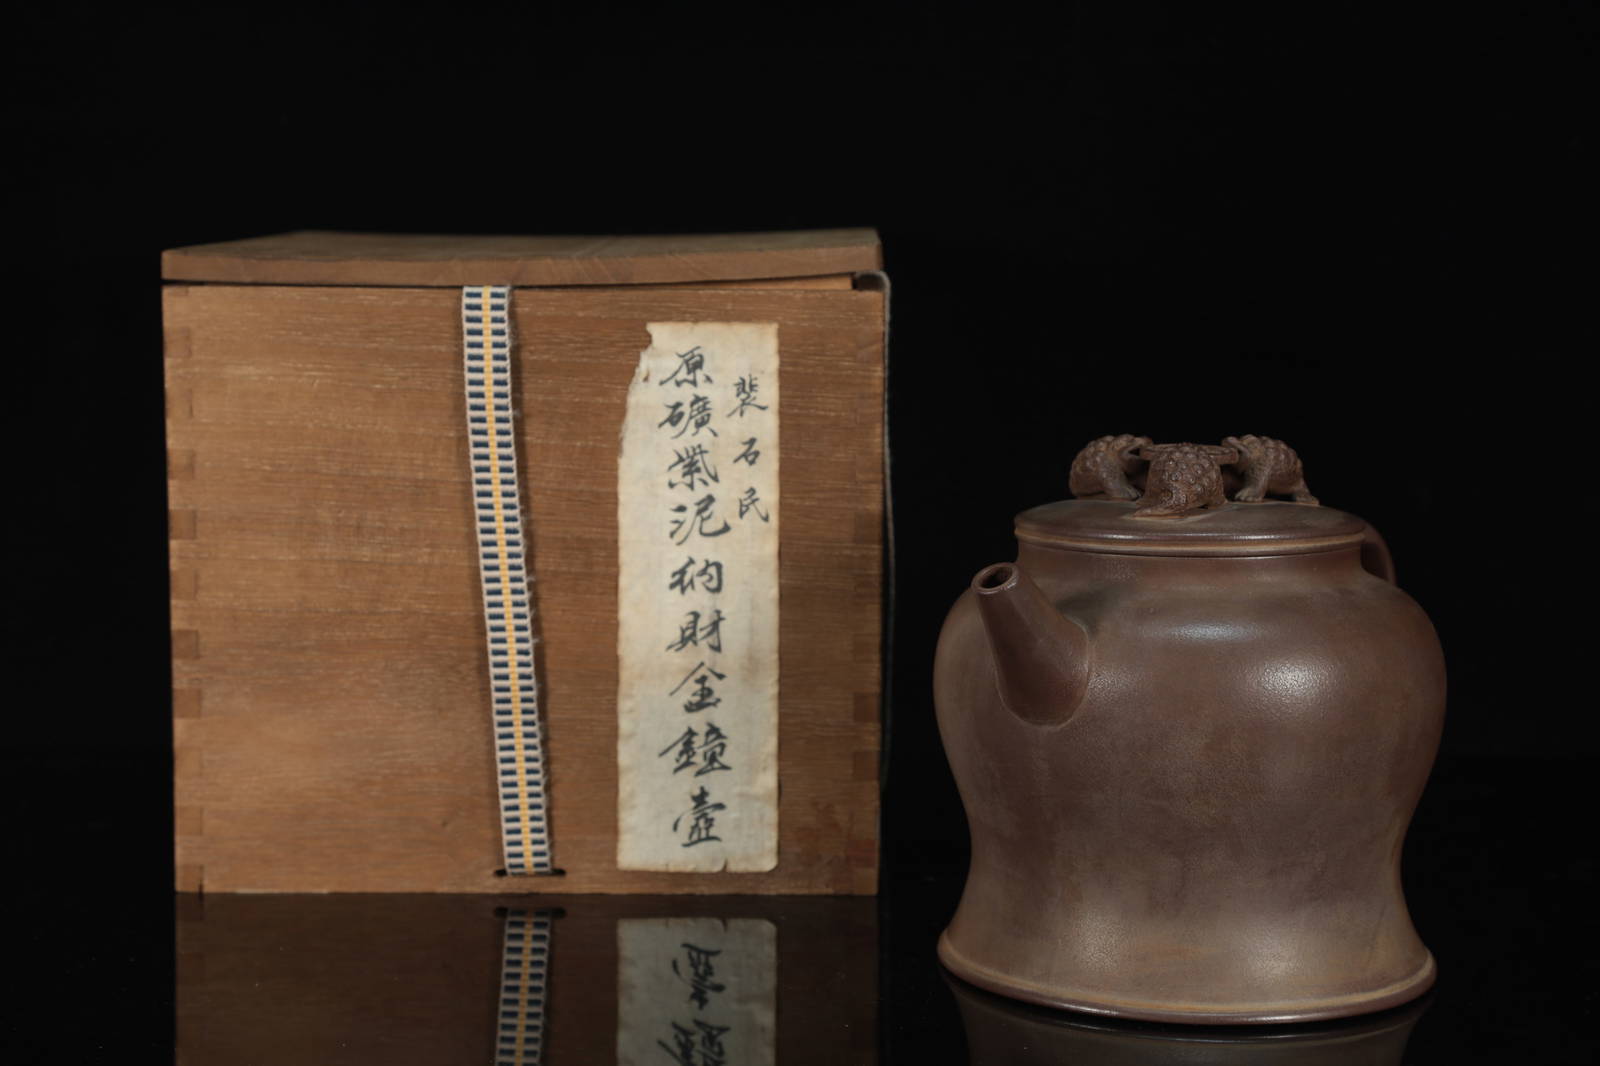 裴石民
原礦紫泥納財金鐘壺